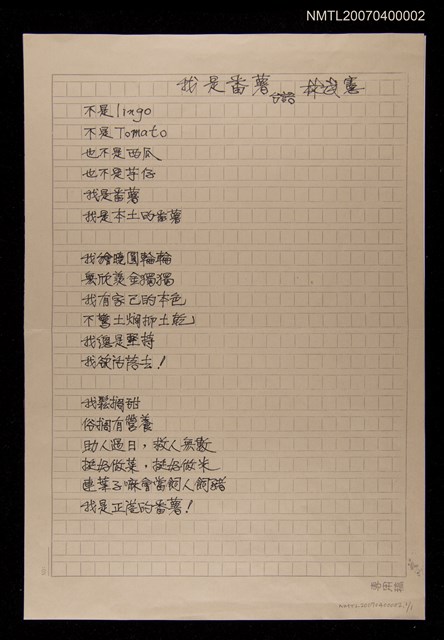 NMTL20070400002
我是番薯 台語 林沈憲
不是lingo
不是Tomato
也不是西瓜
也不是芋仔
我是番薯
我是本土的番薯
我𣍐曉圓輪輪
無欣羨金獨獨
我有家己的本色
不驚土爛抑土乾
我總是堅持
我欲活落去！
我鬆擱甜
俗擱有營養
助人過日，救人無數
挺好做菜，挺好做米
連葉子嘛會當飼人飼豬
我是正港的番薯！
NMTL20070400002 1/1